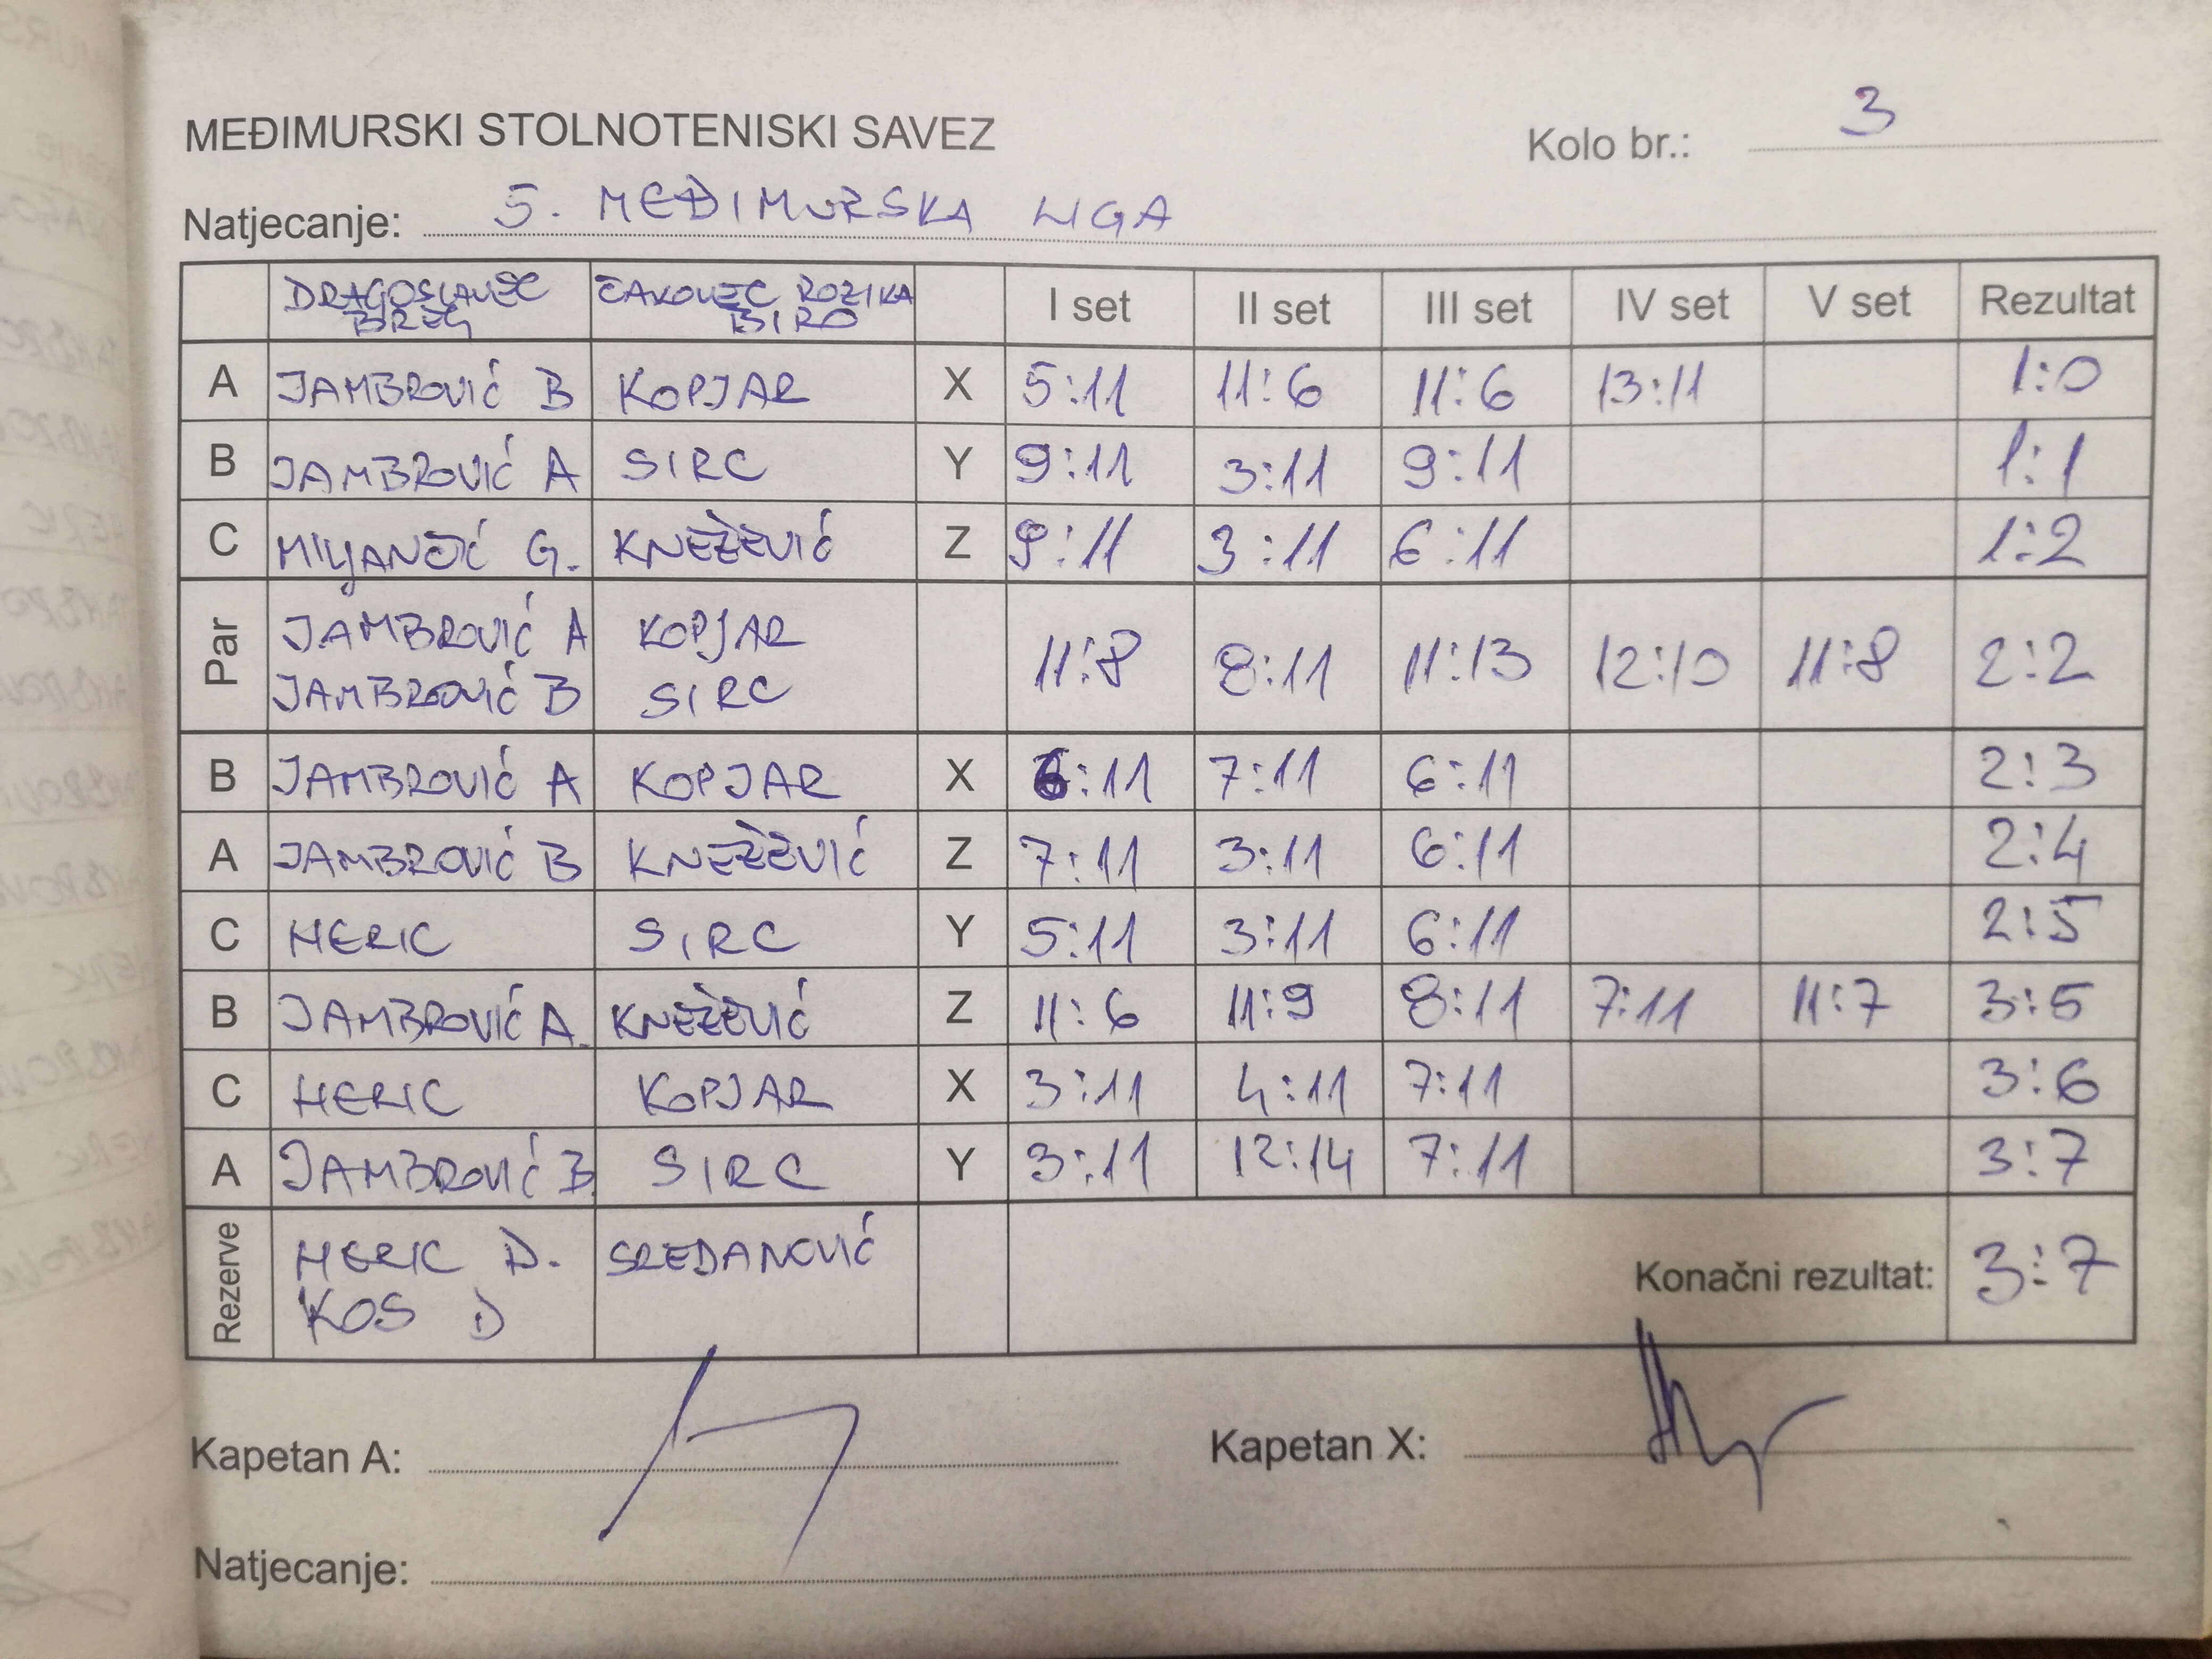 MEĐIMURSKI STOLNOTENISKI SAVEZ
Kolo br.: 3
Natjecanje: 5. MEĐIMURSKA LIGA
DRAGOSLAVEC BREG ČAKOVEC ROZIKA BIRO I set II set III set IV set V set Rezultat
A JAMBROVIĆ B KOPJAR X 5:11 11:6 11:6 13:11 1:0
B JAMBROVIĆ A SIRC Y 9:11 3:11 9:11 1:1
C G. KNEŽEVIĆ Z 9:11 3:11 6:11 1:2
Par JAMBROVIĆ A KOPJAR
JAMBROVIĆ B SIRC 11:8 8:11 11:13 12:10 11:8 2:2
B JAMBROVIĆ A KOPJAR X 6:11 7:11 6:11 2:3
A JAMBROVIĆ B KNEŽEVIĆ Z 7:11 3:11 6:11 2:4
C HERIC SIRC Y 5:11 3:11 6:11 2:5
B JAMBROVIĆ A. KNEŽEVIĆ Z 11:6 11:9 8:11 7:11 11:7 3:5
C HERIC KOPJAR X 3:11 4:11 7:11 3:6
A JAMBROVIĆ B. SIRC Y 3:11 12:14 7:11 3:7
Rezerve HERIC D. SREDANOVIĆ
KOS D
Konačni rezultat: 3:7
Kapetan A:
Kapetan X:
Natjecanje: